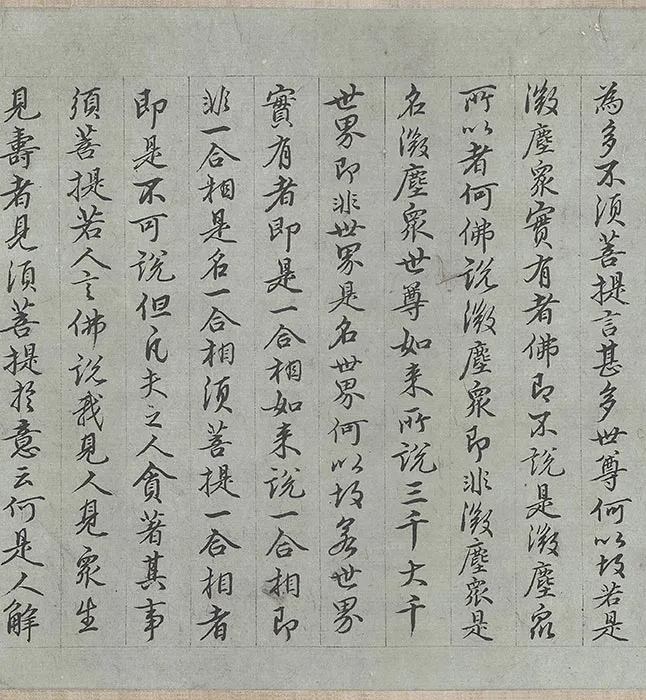 為多不須菩提言甚多世尊何以故若是
微塵眾實有者佛即不說是微塵眾
所以者何佛說微塵眾即非微塵眾是
名微塵眾世尊如來所說三千大千
世界即非世界是名世界何以故若世界
實有者即是一合相如來說一合相即
非一合相是名一合相須菩提一合相者
即是不可說但凡夫之人貪著其事
須菩提若人言佛說我見人見眾生
見壽者見須菩提於意云何是人解